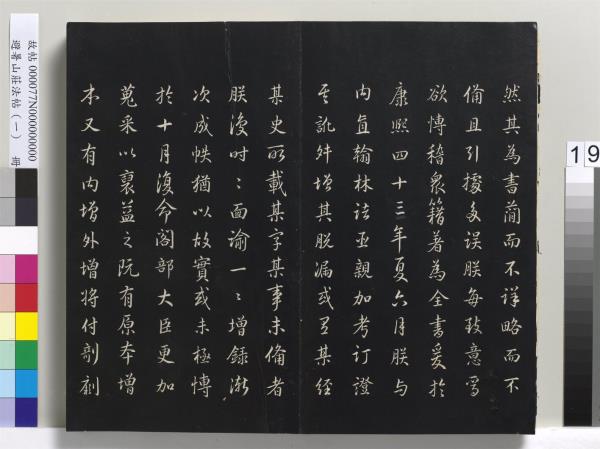 然其為書簡而不詳略而不
備且引據多誤朕每致意焉
欲博稽眾籍著為全書爰於
康熙四十三年夏六月朕與
內直翰林諸臣親加考訂證
其訛舛增其脫漏或有某經
某史所載某字某事未備者
朕復時〻面諭一〻增錄漸
次成帙猶以故實或未極博
於十月復命閣部大臣更加
蒐采以裒益之既有原本增
本又有內增外增將付剞劂
故帖 000077N000000000
避暑山莊法帖(一)
19